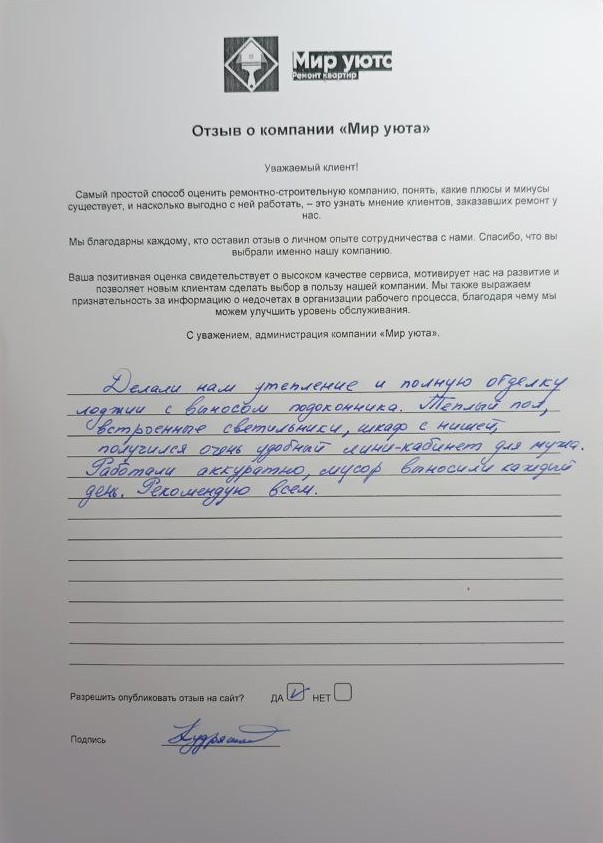 Мир уюта
Ремонт квартир
Отзыв о компании «Мир уюта»
Уважаемый клиент!
Самый простой способ оценить ремонтно-строительную компанию, понять, какие плюсы и минусы
существует, и насколько выгодно с ней работать, – это узнать мнение клиентов, заказавших ремонт у
нас.
Мы благодарны каждому, кто оставил отзыв о личном опыте сотрудничества с нами. Спасибо, что вы
выбрали именно нашу компанию.
Ваша позитивная оценка свидетельствует о высоком качестве сервиса, мотивирует нас на развитие и
позволяет новым клиентам сделать выбор в пользу нашей компании. Мы также выражаем
признательность за информацию о недочетах в организации рабочего процесса, благодаря чему мы
можем улучшить уровень обслуживания.
С уважением, администрация компании «Мир уюта».
Делали нам утепление и полную отделку
лоджии с выносом подоконника. Теплый пол,
встроенные светильники, шкаф с нишей,
получился очень удобный мини-кабинет для мужа.
Работали аккуратно, мусор выносили каждый
день. Рекомендую всем.
Разрешить опубликовать отзыв на сайт? ДА НЕТ
Подпись